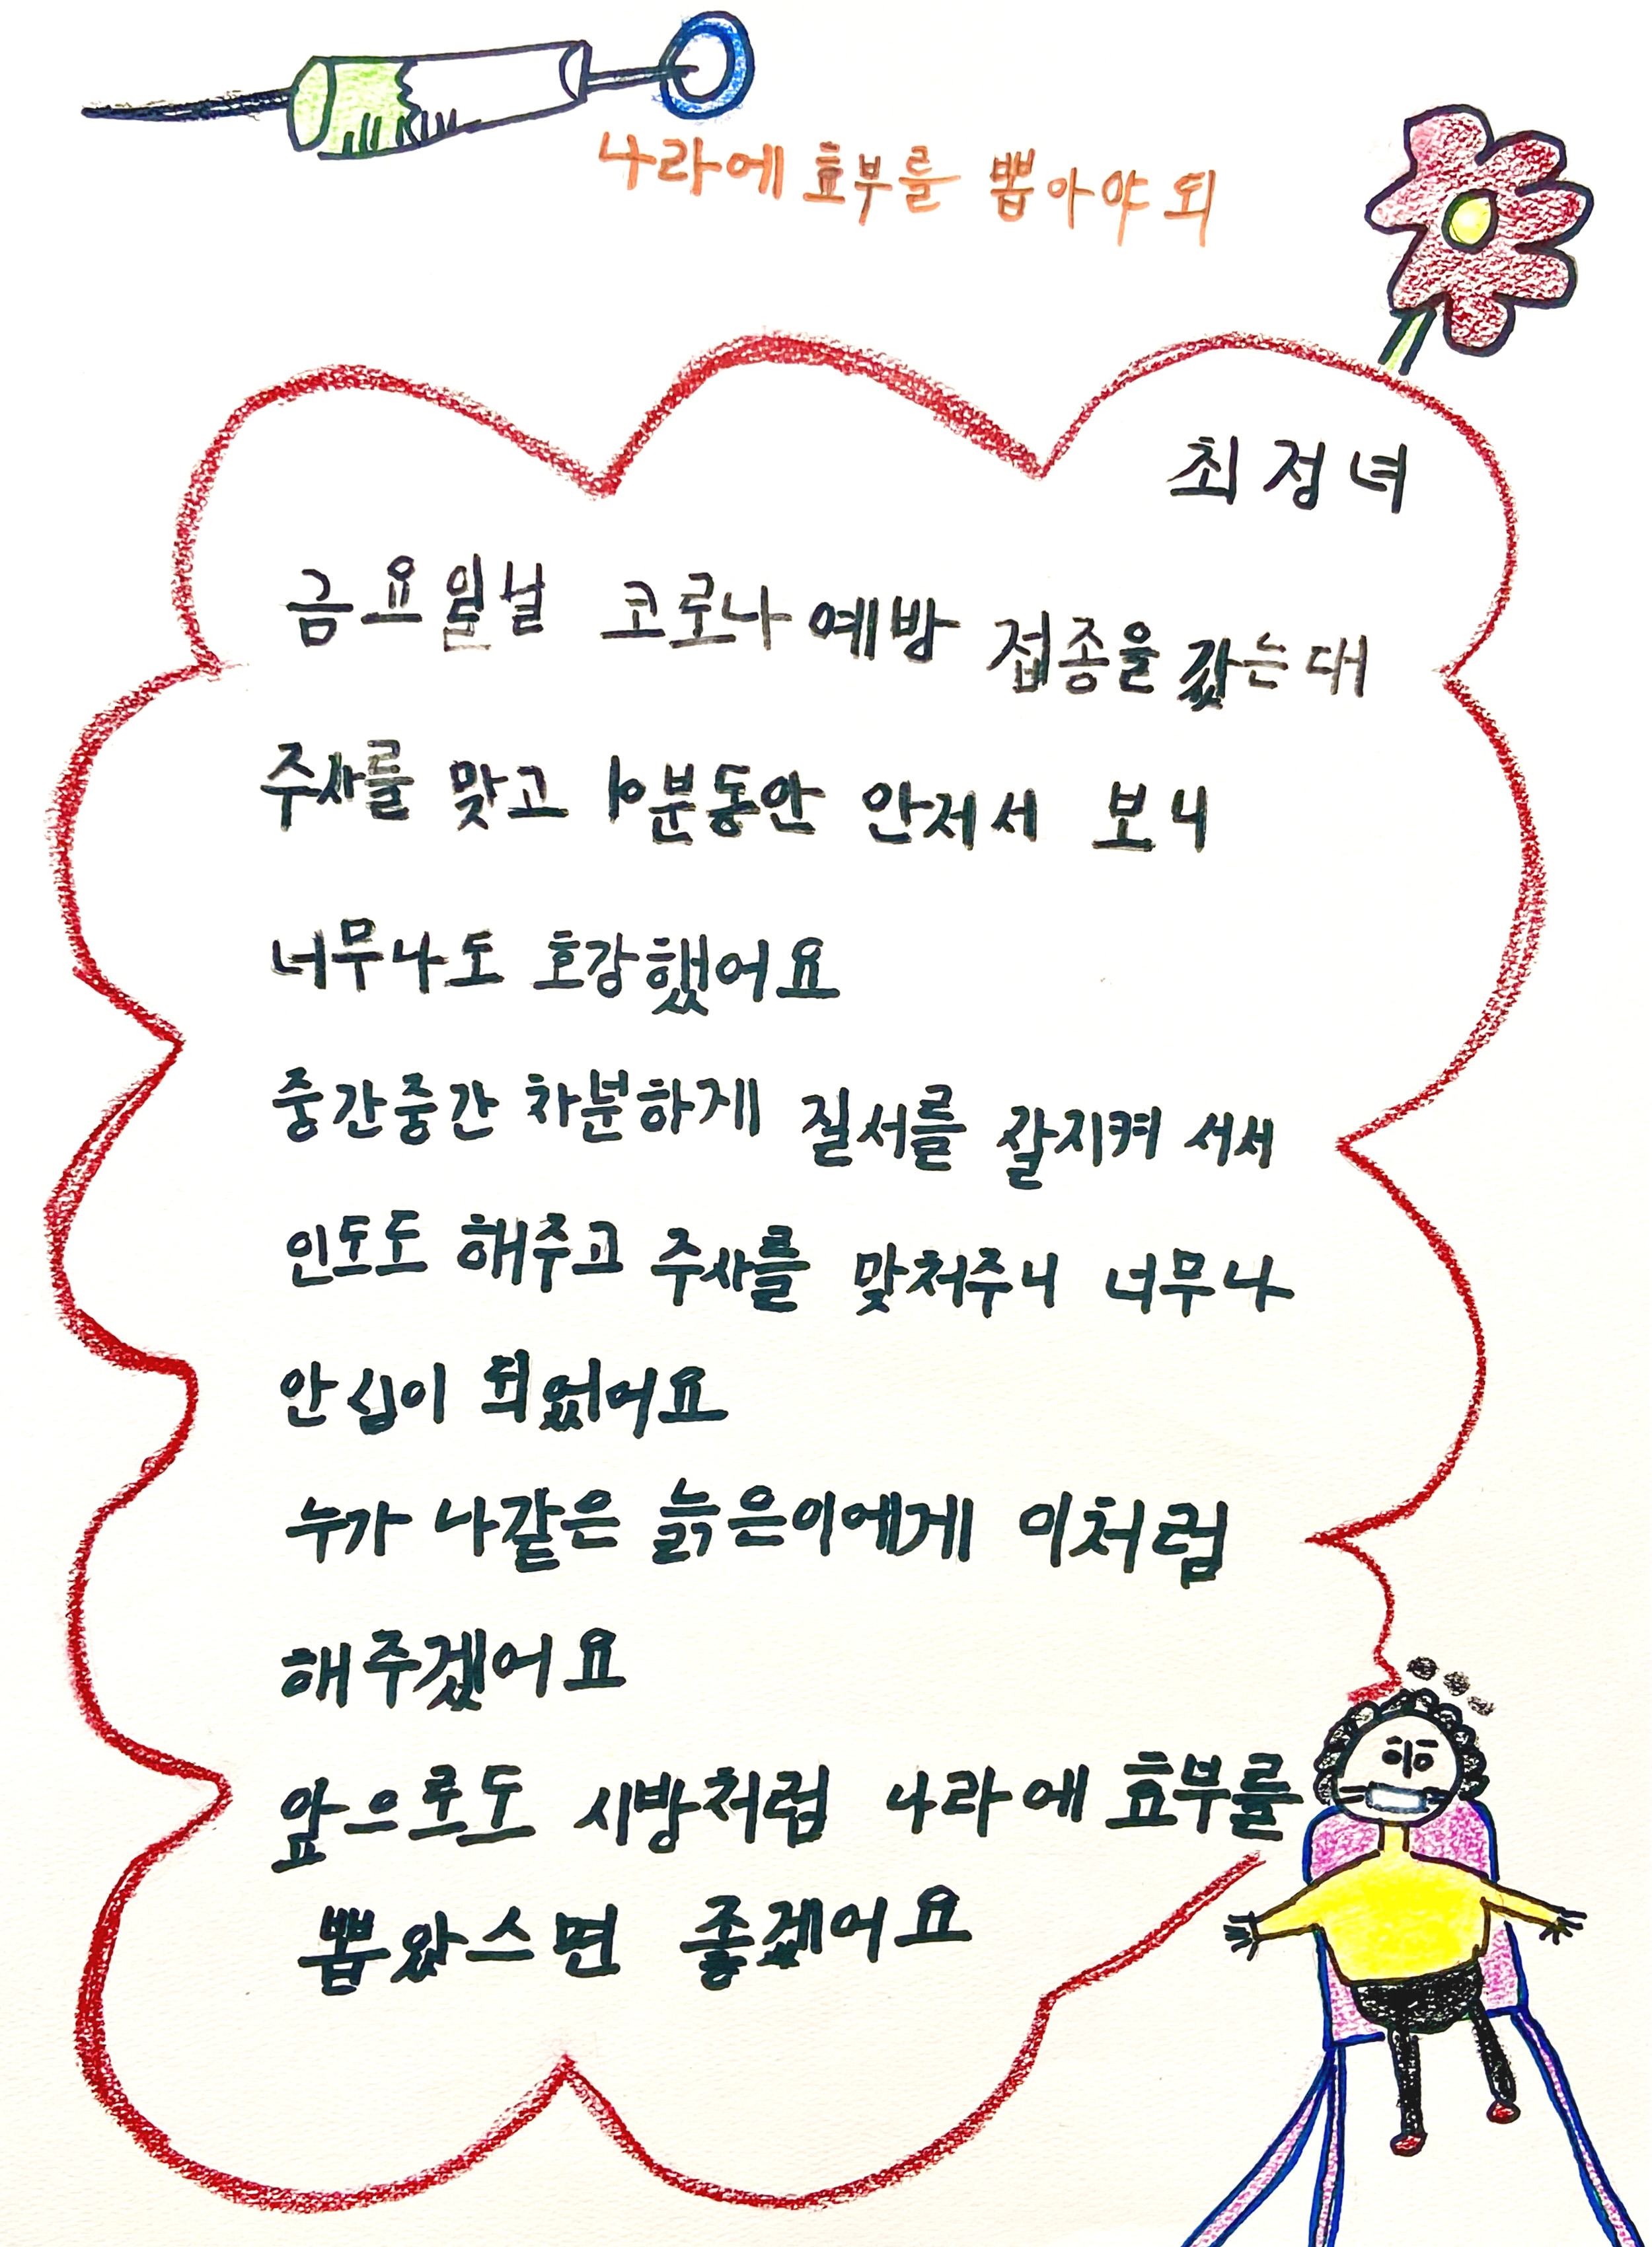 나라에 효부를 뽑아야 되
최정녀
금요일날 코로나 예방 접종을 갔는대
주사를 맞고 10분동안 안저서 보니
너무나도 호강했어요
중간중간 차분하게 질서를 잘지켜 서서
인도도 해주고 주사를 맞처주니 너무나
안심이 되었어요
누가 나같은 늙은이에게 이처럼
해주겠어요
앞으로도 시방처럼 나라에 효부를
뽑았스면 좋겠어요